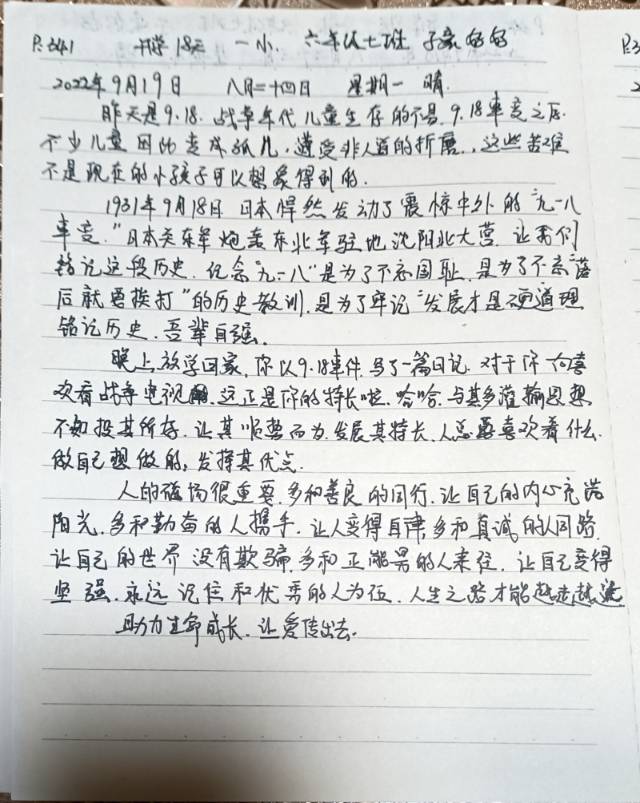 P.341 开学18天 一小. 六年级七班 子豪妈妈
2022年9月19日 八月二十四日 星期一 晴.
昨天是9.18. 战争年代儿童生存的不易. 9.18事变之后
不少儿童因此变成孤儿, 遭受非人道的折磨, 这些苦难
不是现在的小孩子可以想象得到的.
1931年9月18日 日本悍然发动了震惊中外的“九一八
事变.”日本关东军炮轰东北军驻地沈阳北大营. 让我们
铭记这段历史. 纪念“九一八”是为了不忘国耻. 是为了不忘“落
后就要挨打”的历史教训. 是为了牢记“发展才是硬道理
铭记历史. 吾辈自强.
晚上放学回家, 你以9.18事件 写了一篇日记. 对于你一个喜
欢看战争电视 这正是你的特长啦. 哈哈. 与其多灌输思想
不如投其所好. 让其顺势而为. 发展其特长. 人总要喜欢着什么.
做自己想做的, 发挥其优点.
人的磁场很重要. 多和善良的同行. 让自己的内心充满
阳光. 多和勤奋的人携手. 让人变得自律, 多和真诚的人同路.
让自己的世界没有欺骗. 多和正能量的人来往. 让自己变得
坚强. 永远记住和优秀的人为伍. 人生之路才能越走越远
助力生命成长. 让爱传出去.
P.3
2